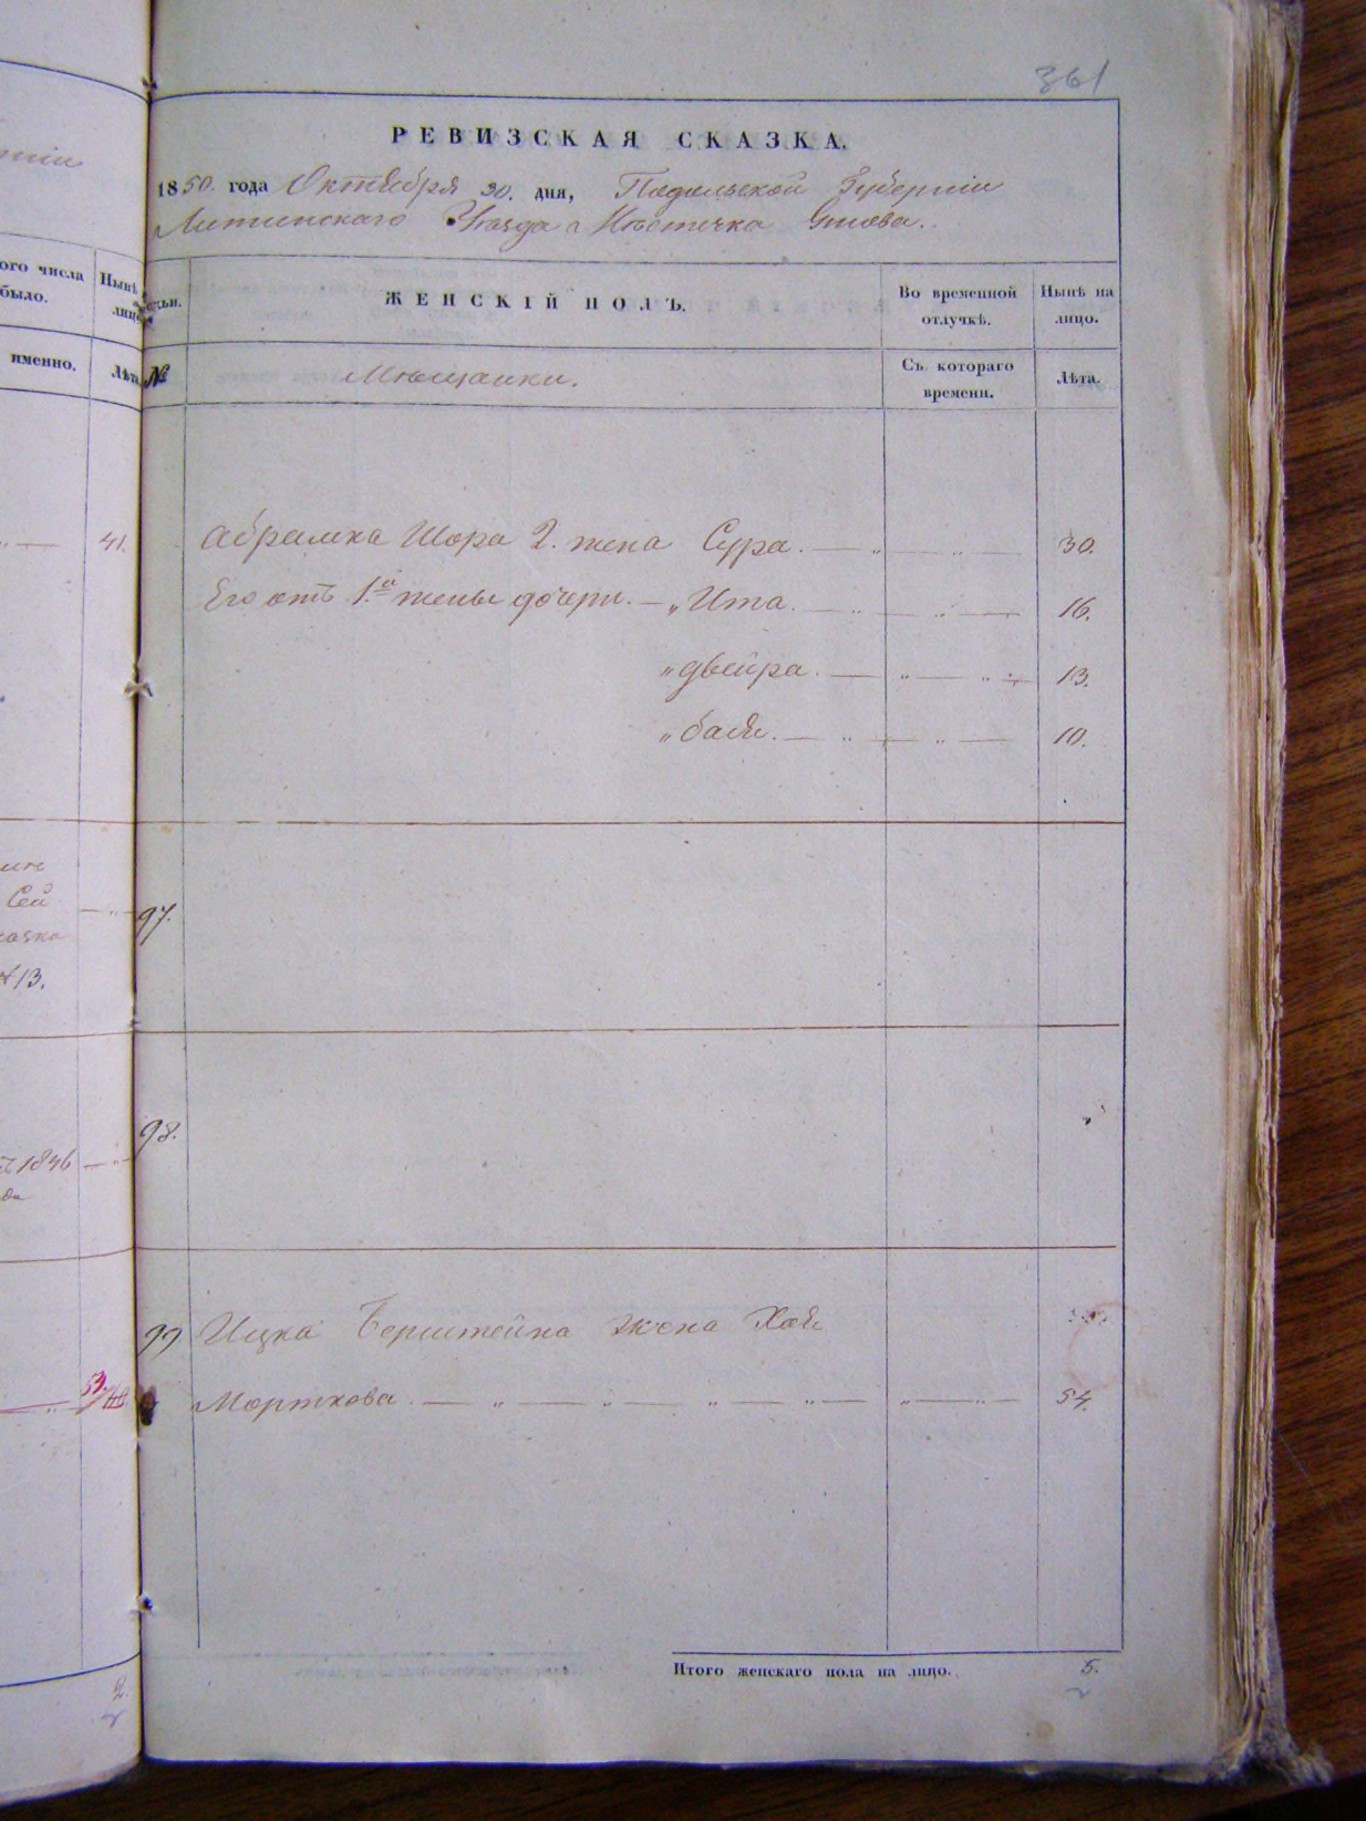 361
РЕВИЗСКАЯ СКАЗКА.
1850. года Октября 30. дня, Подольской Губерніи
Литинскаго Уѣзда Мѣстечка
ого числа
было.
Нынѣ
именно.
Лѣта
№
ЖЕНСКІЙ ПОЛЪ.
Во временной отлучкѣ.
Нынѣ на лицо.
Мѣщанки.
Съ котораго времени.
Лѣта.
41.
Абрамка Шора 2. жена Сура. — „ — „ — 30.
Его отъ 1.й жены дочери. — „ Ита. — „ — „ — 16.
„ двейра. — „ — „ — 13.
„ бася. — „ — „ — 10.
Сей
№13.
97.
98.
1846
99 Ицка Берштейна жена Хая
Морткова. — „ — „ — „ — „ — „ — „ — 54.
53.
Итого женскаго пола на лицо. 5.
2.